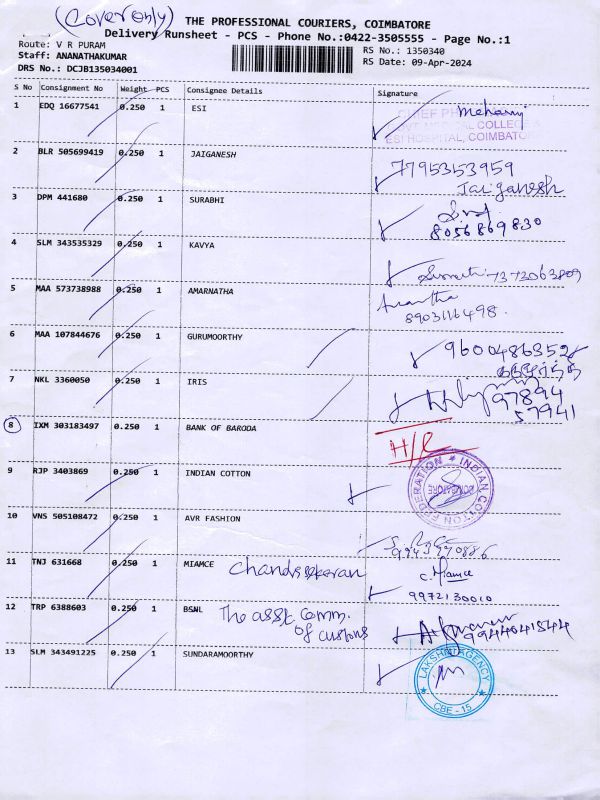 (Cover only)
THE PROFESSIONAL COURIERS, COIMBATORE
Delivery Runsheet - PCS - Phone No.:0422-3505555 - Page No.:1
Route: V R PURAM
RS No.: 1350340
Staff: ANANATHAKUMAR
RS Date: 09-Apr-2024
DRS No.: DCJB135034001
S No Consignment No Weight PCS Consignee Details Signature
1 EDQ 16677541 0.250 1 ESI
CHIEF
MEDICAL COLLEGE &
ESI HOSPITAL, COIMBATORE
2 BLR 505699419 0.250 1 JAIGANESH 7795353959
Jaiganesh
3 DPM 441680 0.250 1 SURABHI
8056869830
4 SLM 343535329 0.250 1 KAVYA 7373063809
5 MAA 573738988 0.250 1 AMARNATHA
8903116498.
6 MAA 107844676 0.250 1 GURUMOORTHY 9600486352
7 NKL 3360050 0.250 1 IRIS 97894
57941
8 IXM 303183497 0.250 1 BANK OF BARODA
9 RJP 3403869 0.250 1 INDIAN COTTON
INDIAN COTTON FEDERATION
COIMBATORE
10 VNS 505108472 0.250 1 AVR FASHION
11 TNJ 631668 0.250 1 MIAMCE Chandrasekaran C. Miamce
9972130010
12 TRP 6388603 0.250 1 BSNL The asst. Comm.
of customs
13 SLM 343491225 0.250 1 SUNDARAMOORTHY
LAKSHMI AGENCY
CBE - 15